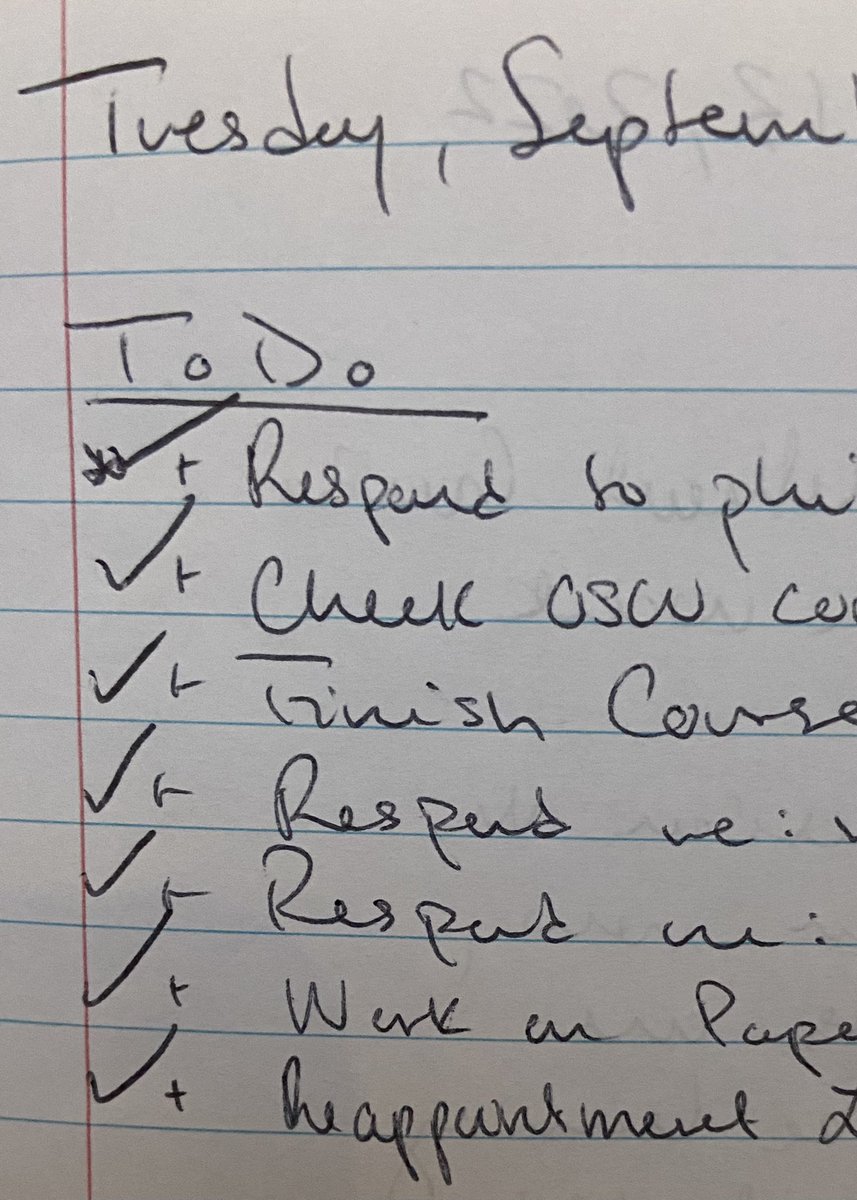 Tuesday, Septem
To Do
+ Respond to phi
+ Check OSW co
+ Finish Course
+ Respond re:
+ Respond re:
+ Work on Pape
+ Reappointment